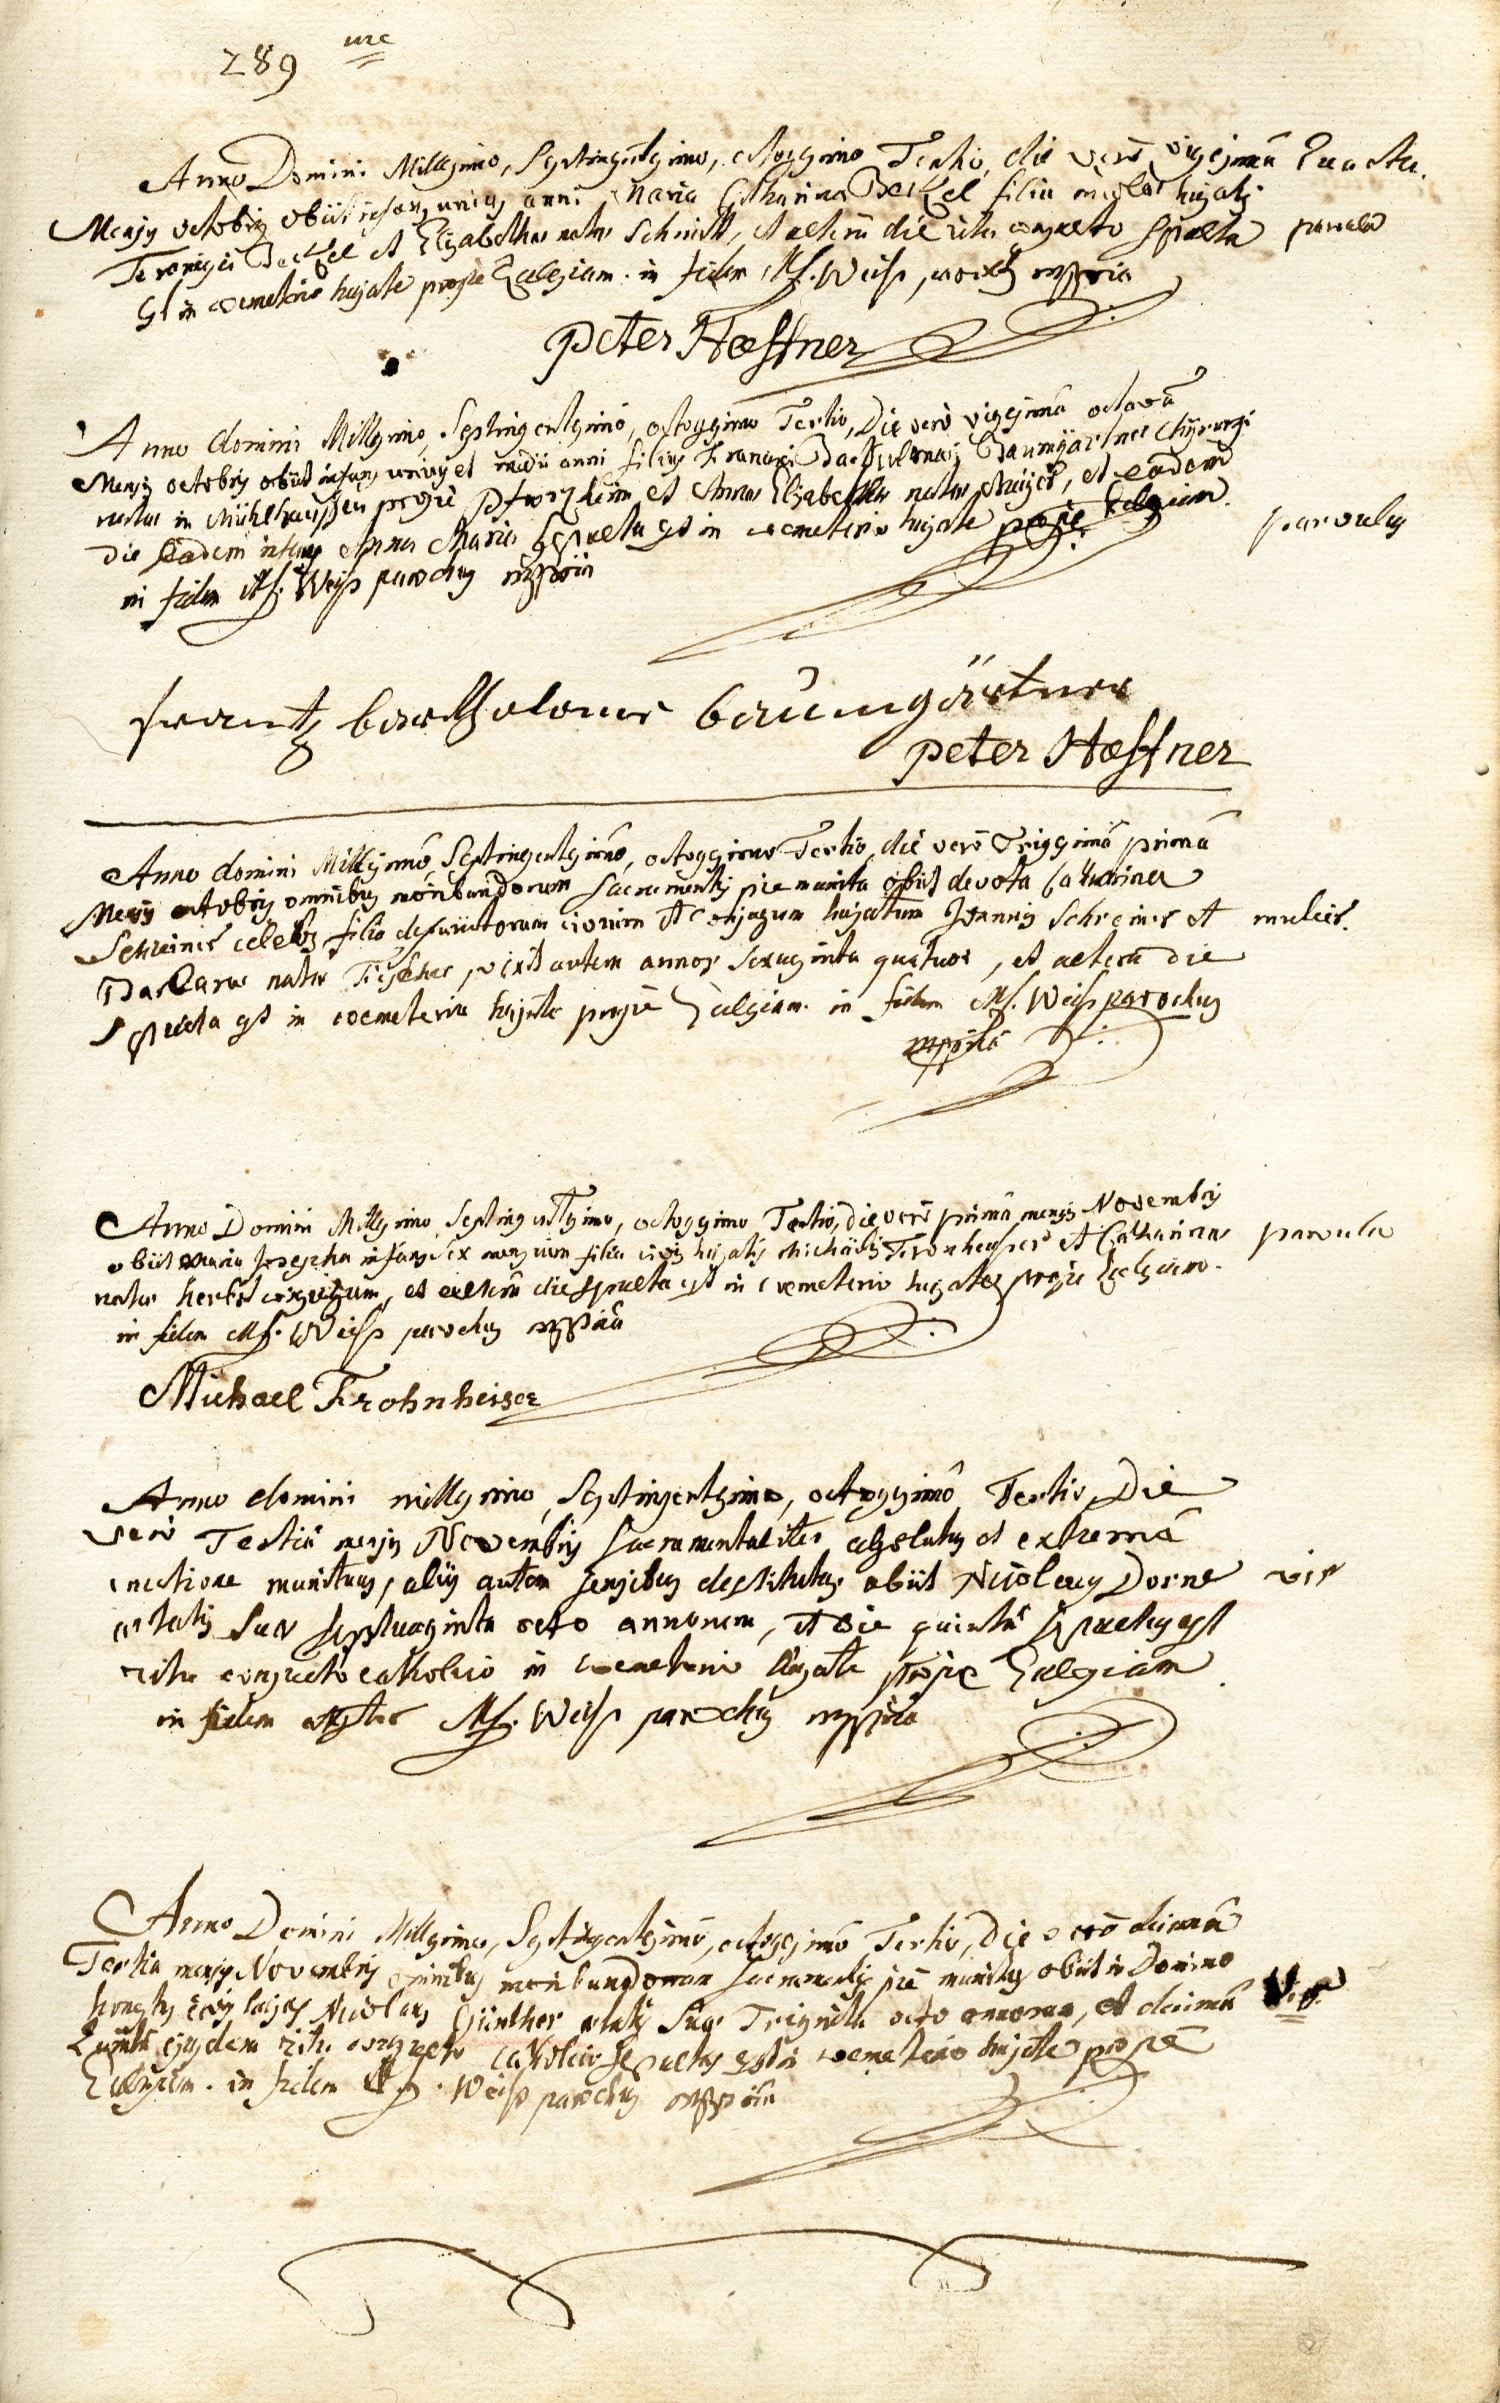 289 me
Anno Domini Millesimo, Septingentesimo, octogesimo Tertio, die verò vigesimâ Quartâ
Mensis octobris obiit infans unius anni Maria Catharina Beckel filia hujatis
Jeronijii Beckel et Elizabethae natae Schmitt, et alterâ die ritu consueto Spulta parvula
est in coemeterio hujate prope Ecclesiam. in fidem Mf. Weiss parochus mppria
Peter Hoeffner
Anno domini Millesimo, Septingentesimo, octogesimo Tertio, Die verò vigesimâ octavâ
Mensis octobris obiit infans unius et medii anni filius Francisci Bartholomaei Baumgartner Chyrurgi
natus in Mühlhausen prope Pforzheim et Annae Elizabethae natae Mayer, et eadem
die eadem infans Anna Maria Sepulta est in coemeterio hujate prope Ecclesiam. parvulus
in fidem Mf. Weiss parochus mppria
frantz bartholome baumgärtner
Peter Hoeffner
Anno domini Millesimô, Septingentesimô, octogesimo Tertio, die verò Trigesimâ primâ
Mensis octobris omnibus moribundorum Sacramentis piè munita obiit devota Catharina
Schreiner celebs filia defunctorum civium et Conjugum hujatum Joannis Schreiner et mulier.
Barbarae natae Fischer, vixit autem annos sexaginta quatuor, et alterâ die
Spulta est in coemeterio hujate prope Ecclesiam. in fidem Mf. Weiss parochus
mppria
Anno Domini Millesimo Septingentesimo, octogesimo Tertio, die verò primâ mensis Novembris
obiit Maria Josepha infans sex mensium filia civis hujatis Michaelis Fronheyser et Catharinae parvula
natae Herbst conjugum, et alterâ die Spulta est in coemeterio hujate prope Ecclesiam.
in fidem Mf. Weiss parochus mppria
Michael Frohnheiser
Anno domini millesimo, Septingentesimo, octogesimô Tertio, Die
verò Tertiâ mensis Novembris Sacramentaliter absolutus et extremâ
unctione munitus, aliis autem sensibus destitutus obiit Nicolaus Dorne vir
aetatis suae septuaginta octo annorum, et die quintâ Spultus est
ritu consueto catholico in coemeterio hujate prope Ecclesiam
in fidem Mf. Weiss parochus mppria
Anno Domini Millesimo, Septingentesimô, octogesimô Tertio, Die verò decimâ
Tertiâ mensis Novembris omnibus moribundorum Sacramentis piè munitus obiit in Domino
honestus civis hujas Nicolaus Günther aetatis suae Triginta octo annorum, et decimâ Vir
Quintâ ejusdem ritu consueto catholico sepultus est in coemeterio hujate propè
Ecclesiam. in fidem Mf. Weiss parochus mppria